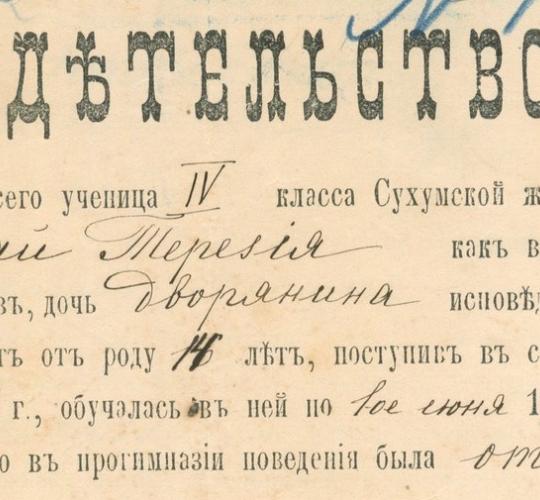 ДѢТЕЛЬСТВО
сего ученица IV класса Сухумской ж
Терезія какъ в
въ, дочь дворянина исповѣд
тъ отъ роду 14 лѣтъ, поступивъ въ с
г., обучалась въ ней по 1ое июня 1
о въ прогимназіи поведенія была от